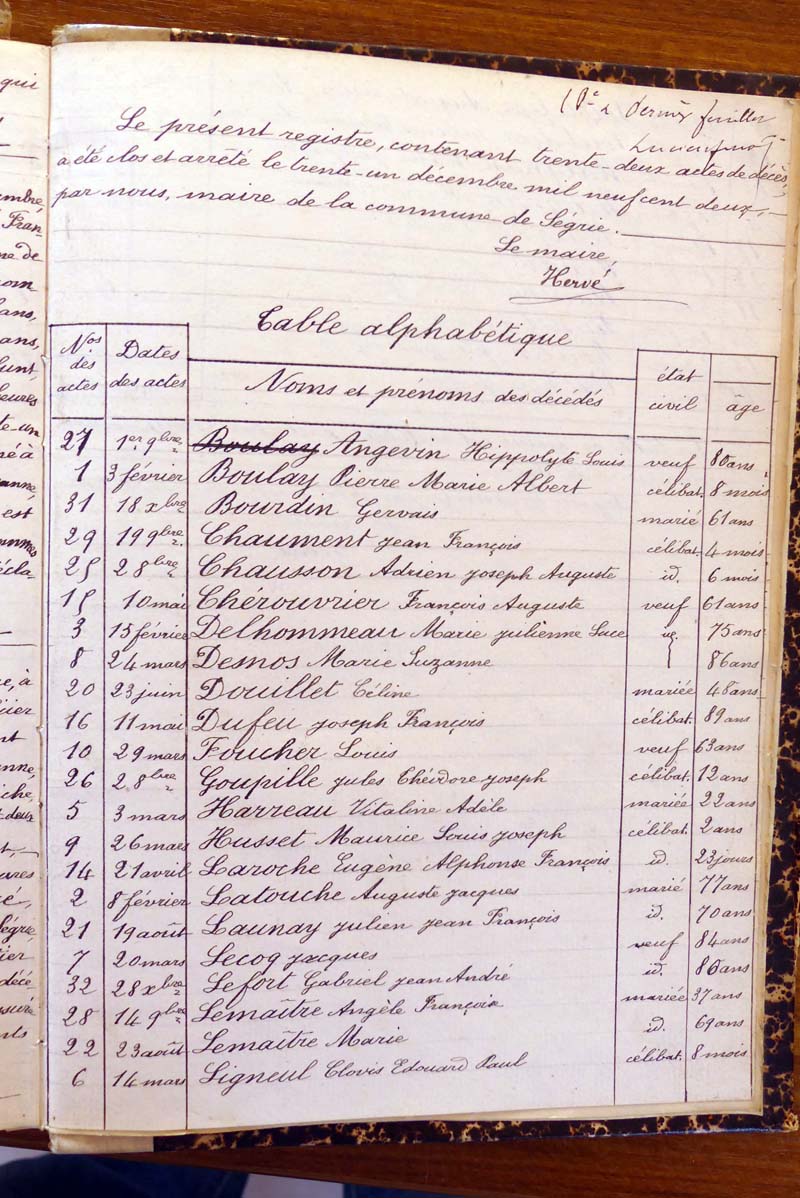 qui
dernier feuillet
Le présent registre, contenant trente-deux actes de décès,
a été clos et arrêté le trente-un décembre mil neuf cent deux,
par nous, maire de la commune de Ségrie.
Le maire,
Hervé
Table alphabétique
Nos des actes Dates des actes Noms et prénoms des décédés état civil âge
27 1er 9bre Boulay Angevin Hippolyte Louis veuf 80 ans
1 3 février Boulay Pierre Marie Albert célibat. 8 mois
31 18 xbre Bourdin Gervais marié 61 ans
29 19 9bre Chaument jean François célibat. 4 mois
25 2 8bre Chausson Adrien joseph Auguste id. 6 mois
15 10 mai Chérouvrier François Auguste veuf 61 ans
3 15 février Delhommeau Marie julienne Luce ve. 75 ans
8 24 mars Desnos Marie Suzanne 86 ans
20 23 juin Douillet Céline mariée 48 ans
16 11 mai Dufeu joseph François célibat. 89 ans
10 29 mars Foucher Louis veuf 63 ans
26 2 8bre Goupille jules Théodore joseph célibat. 12 ans
5 3 mars Harreau Vitaline Adèle mariée 22 ans
9 26 mars Husset Maurice Louis joseph célibat. 2 ans
14 21 avril Laroche Eugène Alphonse François id. 23 jours
2 8 février Latouche Auguste jacques marié 77 ans
21 19 août Launay julien jean François id. 70 ans
7 20 mars Lecoq jacques veuf 84 ans
32 28 xbre Lefort Gabriel jean André id. 86 ans
28 14 9bre Lemaître Angèle Françoise mariée 37 ans
22 23 août Lemaître Marie id. 69 ans
6 14 mars Ligneul Clovis Edouard Paul célibat. 8 mois